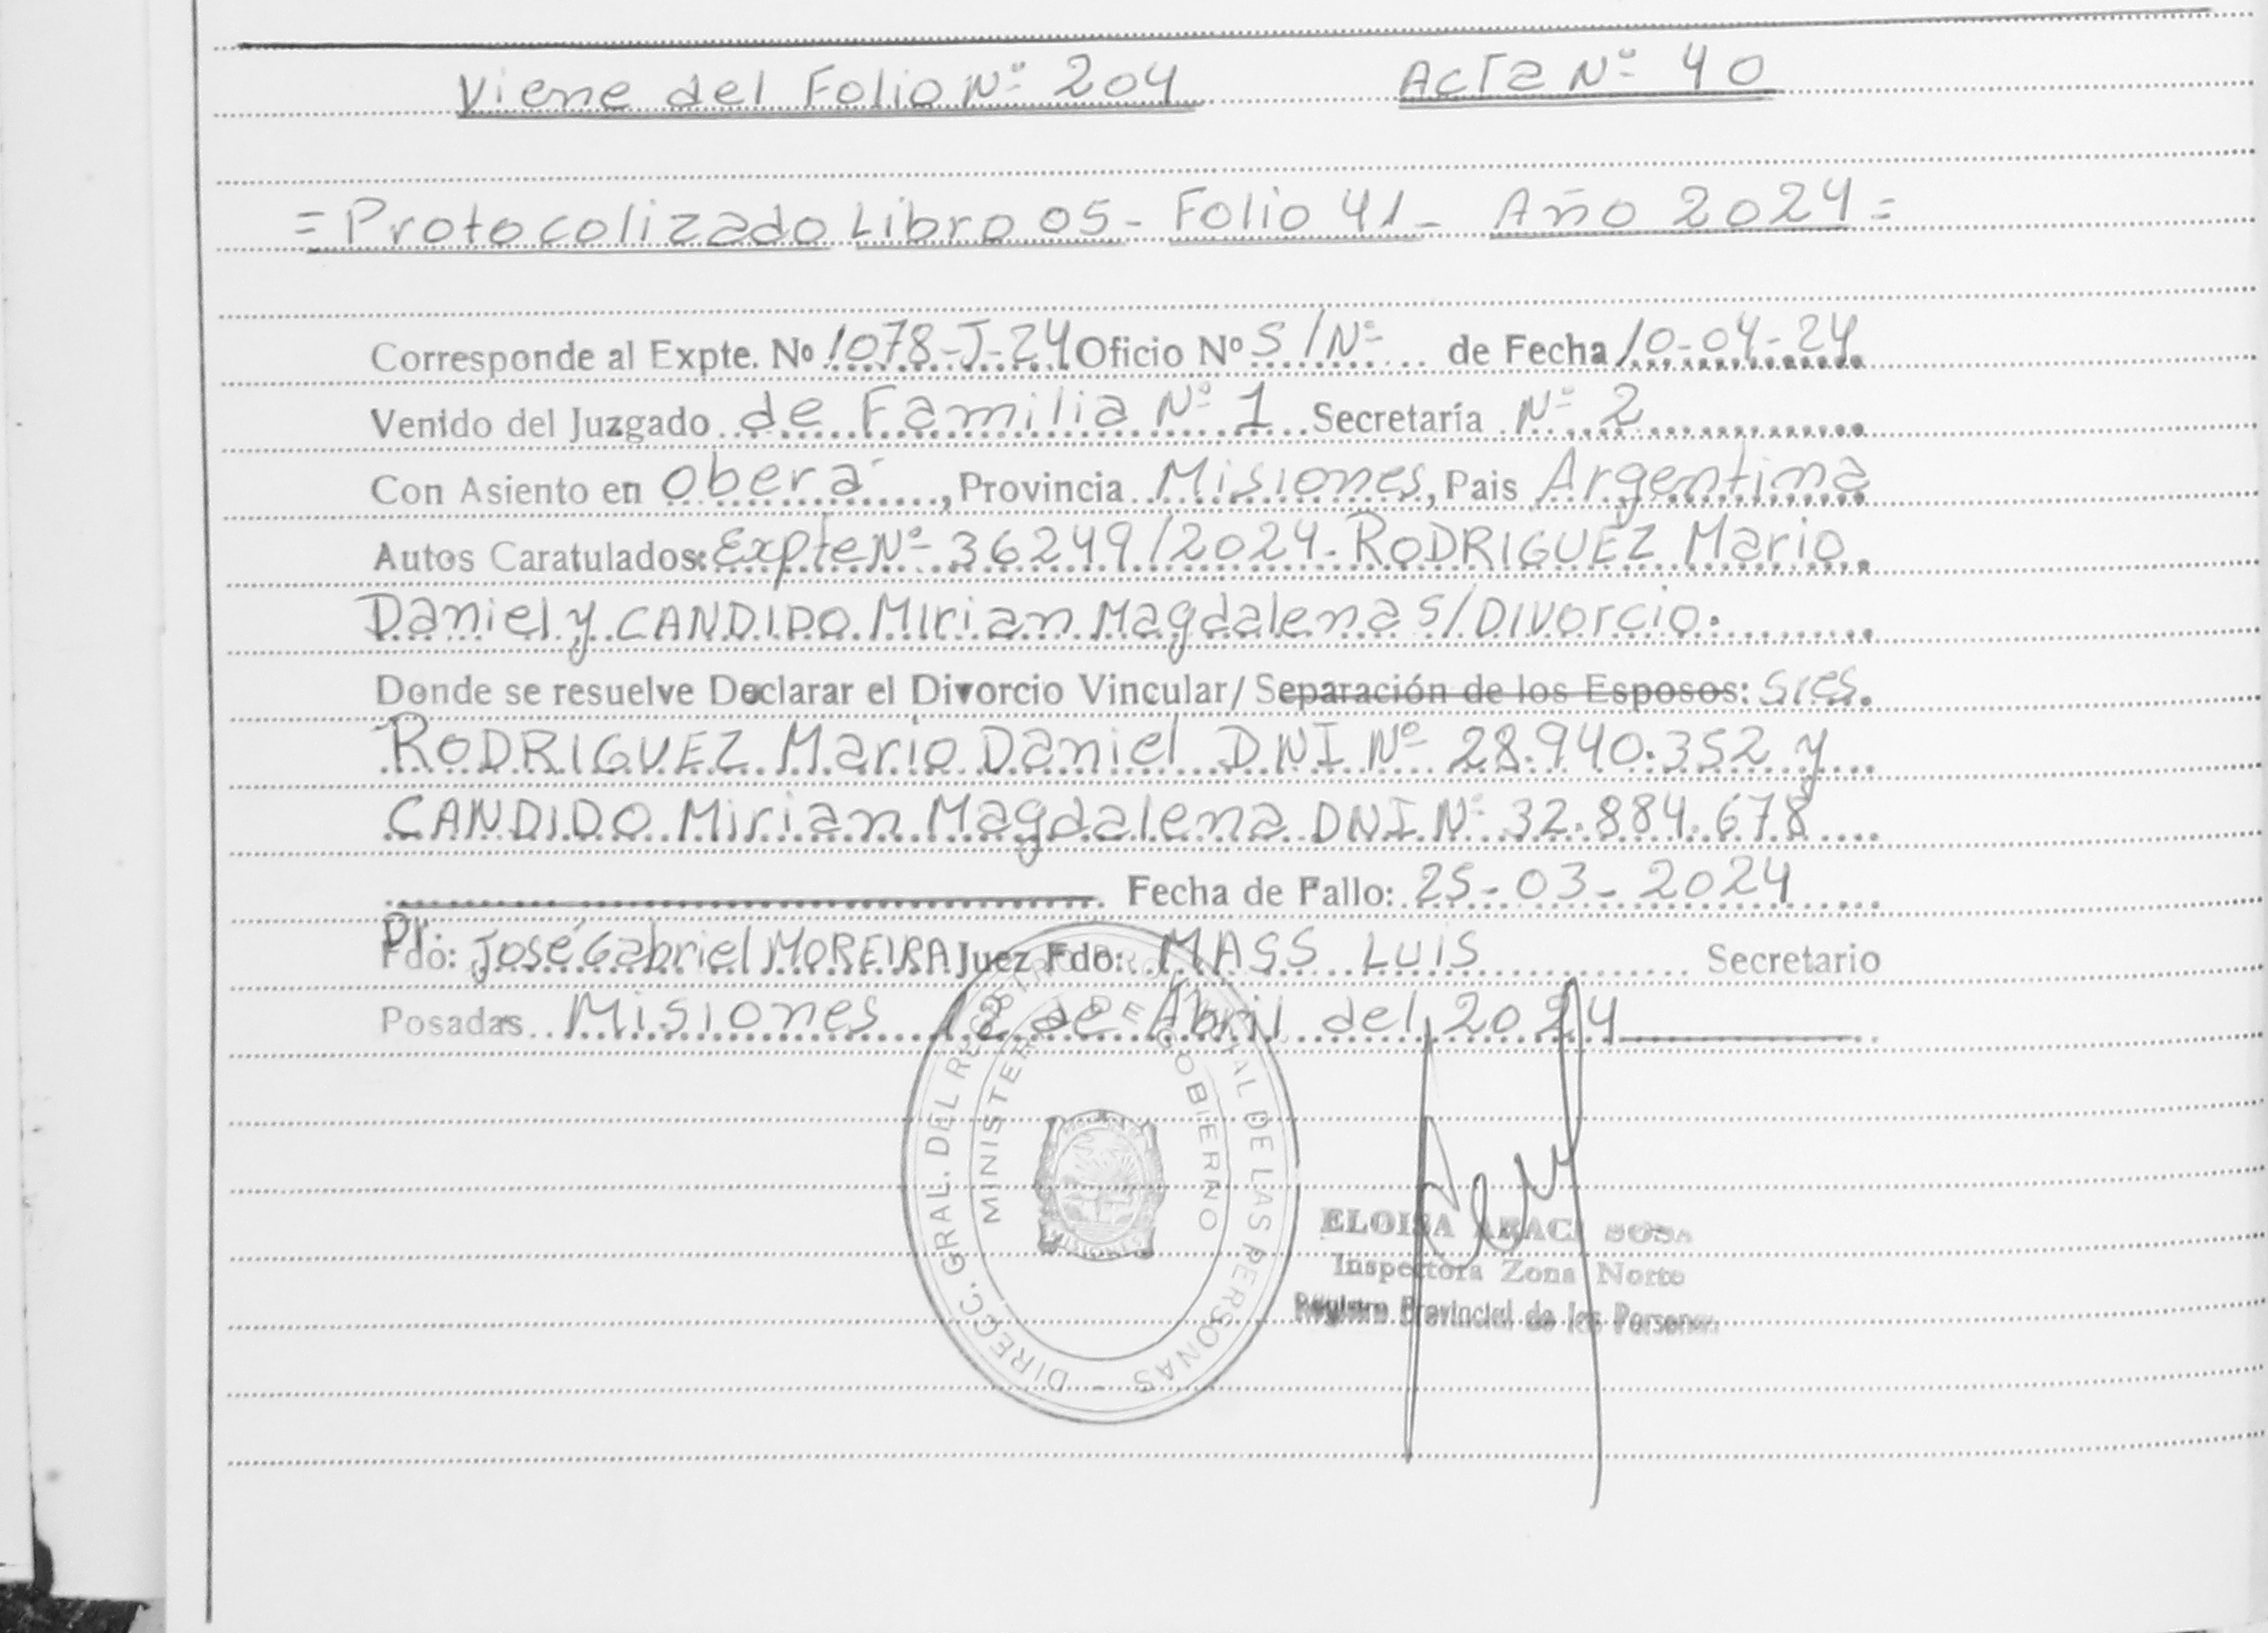 Viene del Folio Nº 204 Acta Nº 40
= Protocolizado Libro 05 - Folio 41 - Año 2024 =
Corresponde al Expte. Nº 1078-J-24 Oficio Nº S/Nº de Fecha 10-04-24
Venido del Juzgado de Familia Nº 1 Secretaría Nº 2
Con Asiento en Oberá, Provincia Misiones, Pais Argentina
Autos Caratulados: Expte Nº 36249/2024. RODRIGUEZ Mario
Daniel y CANDIDO Mirian Magdalena S/Divorcio.
Donde se resuelve Declarar el Divorcio Vincular/ Separación de los Esposos: Sres.
RODRIGUEZ Mario Daniel DNI Nº 28.940.352 y
CANDIDO Mirian Magdalena DNI Nº 32.884.678
Fecha de Fallo: 25-03-2024
Dr.
Fdo: José Gabriel MOREIRA Juez Fdo: MASS LUIS Secretario
Posadas Misiones 12 de Abril del 2024
DIRECC. GRAL. DEL REGISTRO PROVINCIAL DE LAS PERSONAS -
MINISTERIO DE GOBIERNO
MISIONES
ELOISA ARACI SOSA
Inspectora Zona Norte
Registro Provincial de las Personas